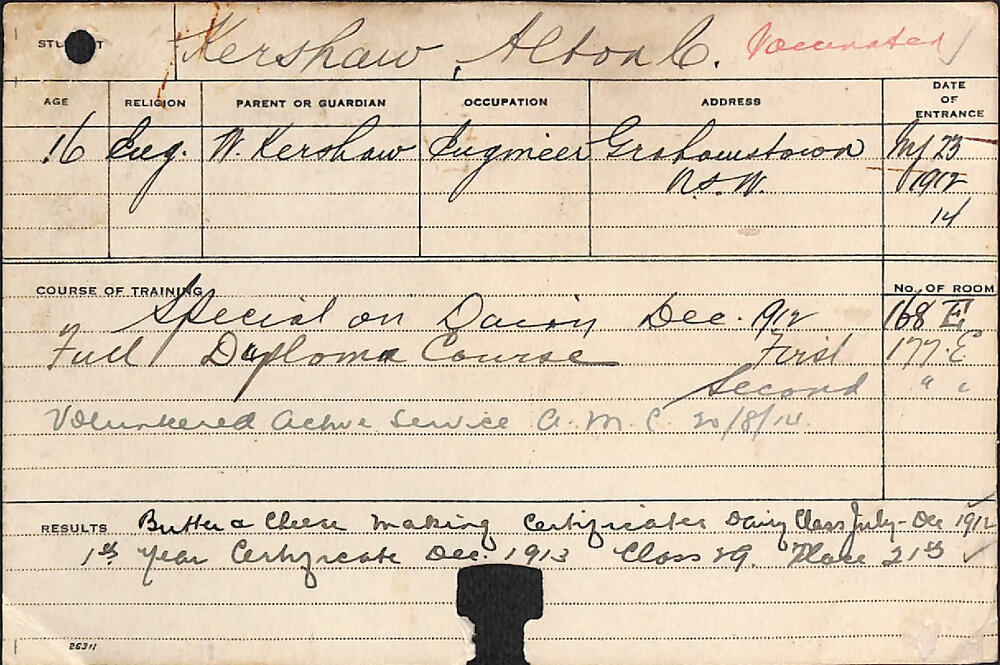 STUDENT Kershaw, Alton C. Vaccinated
AGE RELIGION PARENT OR GUARDIAN OCCUPATION ADDRESS DATE OF ENTRANCE
16 Eng. W. Kershaw Engineer Grahamstown 23
N.S.W. 1912
14
COURSE OF TRAINING No. OF ROOM
Special on Dairy Dec. 1912 168 E
Full Diploma Course First 177. E
Second " "
Volunteered Active Service A. M. C. 20/8/14.
RESULTS Butter & Cheese Making Certificates Dairy Class July - Dec 1912
1st Year Certificate Dec. 1913 Class 29. Place 21st
26311